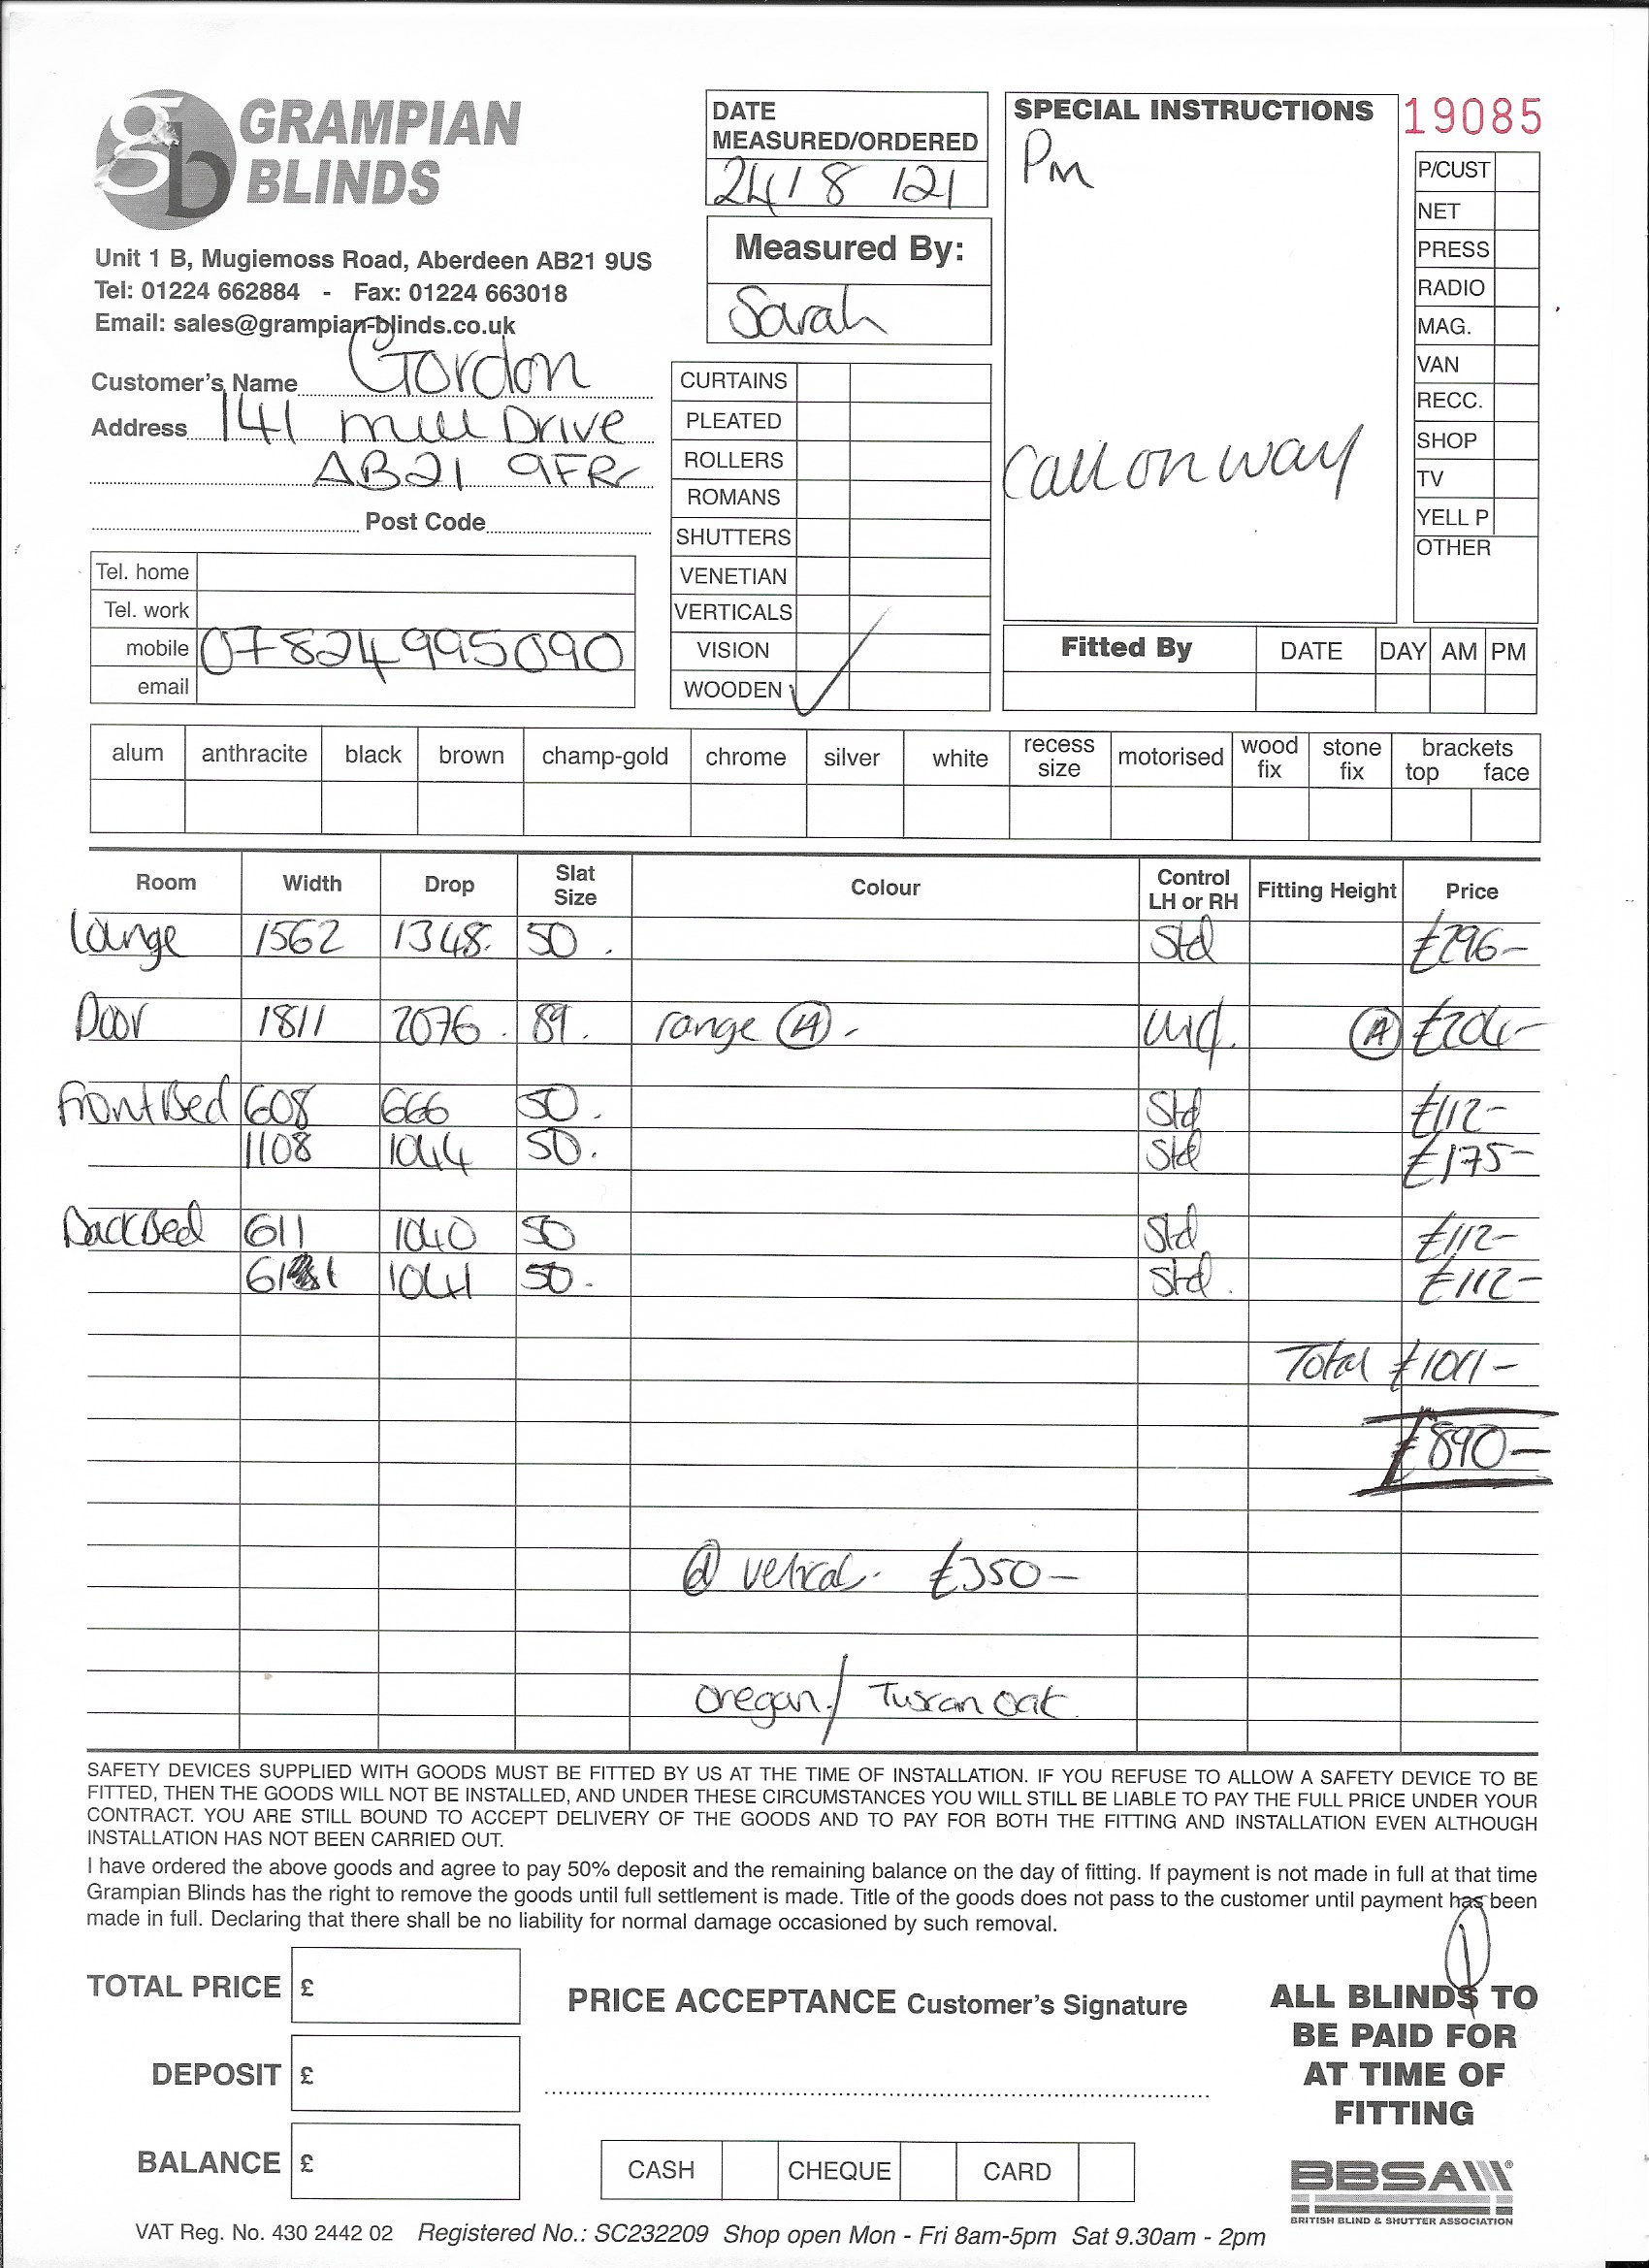 GRAMPIAN BLINDS
Unit 1 B, Mugiemoss Road, Aberdeen AB21 9US
Tel: 01224 662884 - Fax: 01224 663018
Email: sales@grampian-blinds.co.uk
Customer's Name Gordon
Address 141 Mill Drive
AB21 9FR
Post Code
Tel. home
Tel. work
mobile 07824995090
email
DATE MEASURED/ORDERED
24/8/21
Measured By:
Sarah
CURTAINS
PLEATED
ROLLERS
ROMANS
SHUTTERS
VENETIAN
VERTICALS
VISION
WOODEN ✓
SPECIAL INSTRUCTIONS
Pm
Call on way
19085
P/CUST
NET
PRESS
RADIO
MAG.
VAN
RECC.
SHOP
TV
YELL P
OTHER
Fitted By DATE DAY AM PM
alum anthracite black brown champ-gold chrome silver white recess size motorised wood fix stone fix brackets top face
Room Width Drop Slat Size Colour Control LH or RH Fitting Height Price
Lounge 1562 1348. 50. Std £296-
Door 1811 2076. 89. range (A). (A) £204-
Front Bed 608 666 50. Std £112-
1108 1044 50. Std £175-
Back Bed 611 1040 50 Std £112-
1041 50. Std. £112-
Total £1011-
£890-
vertical. £350-
Oregan./ Tuscan Oak.
SAFETY DEVICES SUPPLIED WITH GOODS MUST BE FITTED BY US AT THE TIME OF INSTALLATION. IF YOU REFUSE TO ALLOW A SAFETY DEVICE TO BE
FITTED, THEN THE GOODS WILL NOT BE INSTALLED, AND UNDER THESE CIRCUMSTANCES YOU WILL STILL BE LIABLE TO PAY THE FULL PRICE UNDER YOUR
CONTRACT. YOU ARE STILL BOUND TO ACCEPT DELIVERY OF THE GOODS AND TO PAY FOR BOTH THE FITTING AND INSTALLATION EVEN ALTHOUGH
INSTALLATION HAS NOT BEEN CARRIED OUT.
I have ordered the above goods and agree to pay 50% deposit and the remaining balance on the day of fitting. If payment is not made in full at that time
Grampian Blinds has the right to remove the goods until full settlement is made. Title of the goods does not pass to the customer until payment has been
made in full. Declaring that there shall be no liability for normal damage occasioned by such removal.
TOTAL PRICE £
DEPOSIT £
BALANCE £
PRICE ACCEPTANCE Customer's Signature
CASH CHEQUE CARD
ALL BLINDS TO
BE PAID FOR
AT TIME OF
FITTING
BBSA
BRITISH BLIND & SHUTTER ASSOCIATION
VAT Reg. No. 430 2442 02 Registered No.: SC232209 Shop open Mon - Fri 8am-5pm Sat 9.30am - 2pm